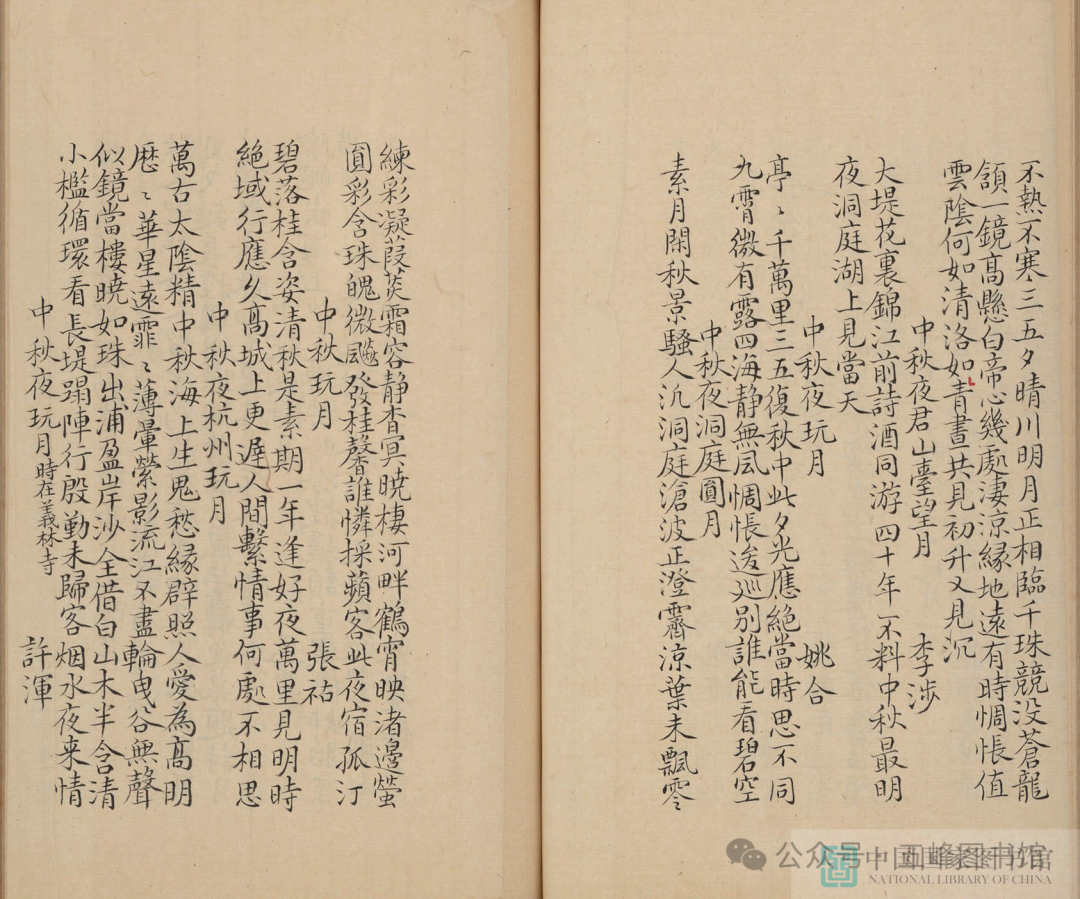 不熱不寒三五夕晴川明月正相臨千珠競没蒼龍
頷一鏡髙懸白帝心幾處淒涼緣地遠有時惆悵值
雲陰何如清洛如青晝共見初升又見沉
中秋夜君山臺望月 李涉
大堤花裏錦江前詩酒同游四十年不料中秋最明
夜洞庭湖上見當天
中秋夜玩月 姚合
亭〻千萬里三五復秋中此夕光應絕當時思不同
九霄微有露四海静無風惆悵逡巡别誰能看碧空
中秋夜洞庭圓月
素月閑秋景騷人汎洞庭滄波正澄霽涼葉未飄零
練彩凝葭菼霜容静杳冥曉棲河畔鶴宵映渚邊螢
圓彩含珠魄微飈發桂馨誰憐採蘋客此夜宿孤汀
中秋玩月 張祜
碧落桂含姿清秋是素期一年逢好夜萬里見明時
絕域行應久髙城上更遲人間繫情事何處不相思
中秋夜杭州玩月
萬古太陰精中秋海上生鬼愁緣辟照人愛為髙明
歷〻華星遠霏〻薄暈縈影流江不盡輪曳谷無聲
似鏡當樓曉如珠出浦盈岸沙全借白山木半含清
小檻循環看長堤蹋陣行殷勤未歸客烟水夜来情
中秋夜玩月時在義林寺 許渾
公众号·西峰图书馆
中国国家图书馆
NATIONAL LIBRARY OF CHINA